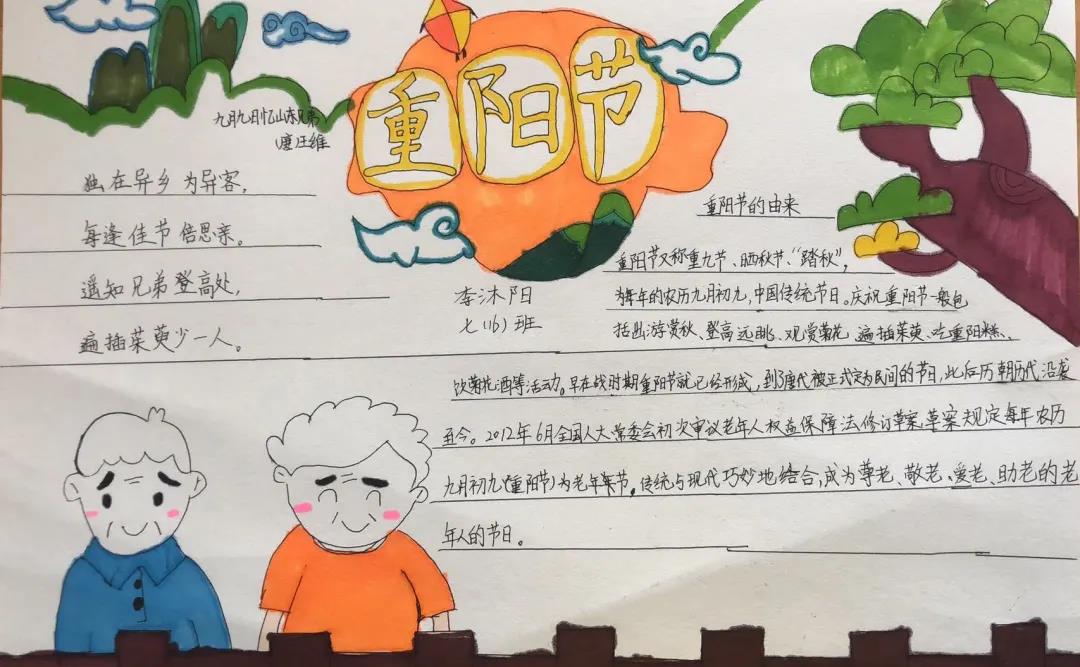 重阳节
九月九日忆山东兄弟
(唐)王维
独在异乡为异客,
每逢佳节倍思亲。
遥知兄弟登高处,
遍插茱萸少一人。
李沐阳
七(16)班
重阳节的由来
重阳节又称重九节、晒秋节、“踏秋”,
为每年的农历九月初九,中国传统节日。庆祝重阳节一般包
括出游赏秋、登高远眺、观赏菊花 遍插茱萸、吃重阳糕、
饮菊花酒等活动。早在战时期重阳节就已经形成,到了唐代被正式定为民间的节日,此后历朝历代沿袭
至今。2012年6月全国人大常委会初次审议老年人权益保障法修订草案,草案规定每年农历
九月初九(重阳节)为老年节。传统与现代巧妙地结合,成为尊老、敬老、爱老、助老的老
年人的节日。